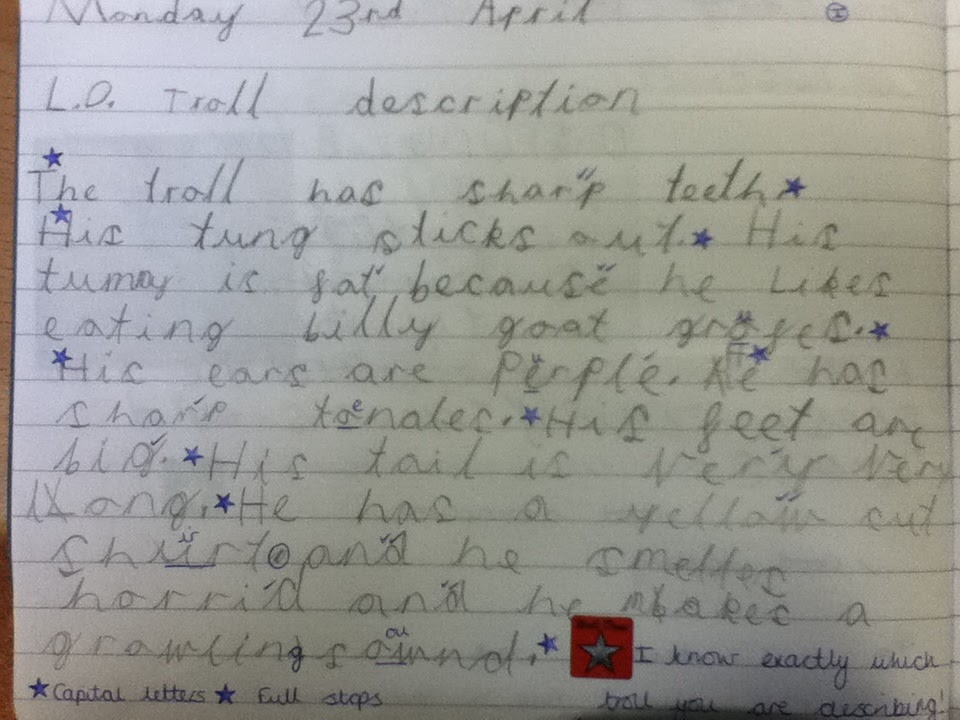 Monday 23rd April
L.O. Troll description
The troll has sharp teeth
His tung sticks out. His
tummy is fat because he Likes
eating billy goat
His ears are Perple. He has
sharp toenales. His feet are
big. His tail is Very Very
Long. He has a yellow cut
shurt and he smelles
horrid and he makes a
growling sound.
I know exactly which
Capital letters Full stops troll you are describing!